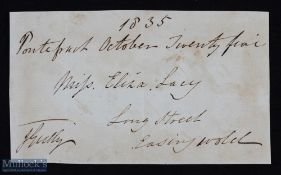 1835
Pontefract October Twenty five
Miss. Eliza. Lacy
Long Street
JGully Easingwold
Mullock's